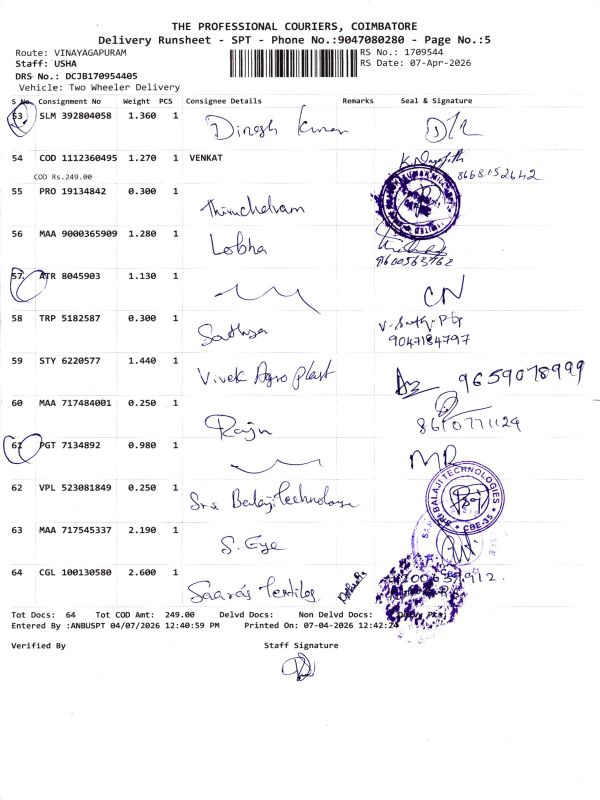 THE PROFESSIONAL COURIERS, COIMBATORE
Delivery Runsheet - SPT - Phone No.:9047080280 - Page No.:5
Route: VINAYAGAPURAM RS No.: 1709544
Staff: USHA RS Date: 07-Apr-2026
DRS No.: DCJB170954405
Vehicle: Two Wheeler Delivery
S No. Consignment No Weight PCS Consignee Details Remarks Seal & Signature
53 SLM 392804058 1.360 1 Dinesh Kumar
54 COD 1112360495 1.270 1 VENKAT
COD Rs.249.00 8668152642
55 PRO 19134842 0.300 1 Thiruchelvam
56 MAA 9000365909 1.280 1 Lobha
9600563762
57 ATR 8045903 1.130 1 CN
58 TRP 5182587 0.300 1 Sathya
9047184797
59 STY 6220577 1.440 1 Vivek Agro Plast 9659078999
60 MAA 717484001 0.250 1 Raju
61 PGT 7134892 0.980 1 MR
62 VPL 523081849 0.250 1 Sri Balaji Technology SRI BALAJI TECHNOLOGIES CBE-35
63 MAA 717545337 2.190 1 S. Eye
64 CGL 100130580 2.600 1 Saaras Textiles
Tot Docs: 64 Tot COD Amt: 249.00 Delvd Docs: Non Delvd Docs:
Entered By :ANBUSPT 04/07/2026 12:40:59 PM Printed On: 07-04-2026 12:42:24
Verified By Staff Signature